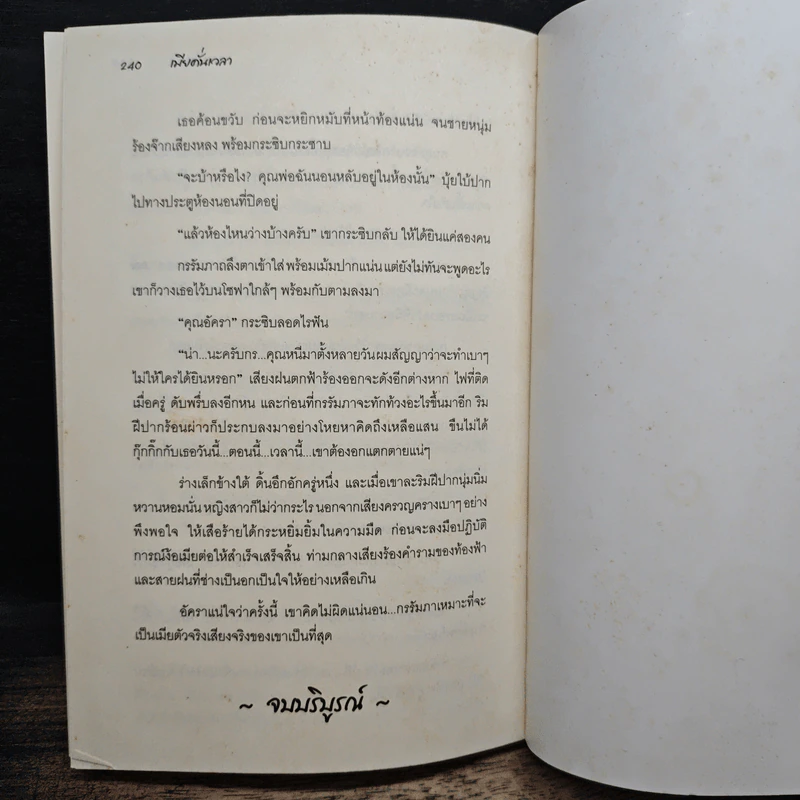 240 เมียคั่นเวลา
เธอค้อนขวับ ก่อนจะหยิกหมับที่หน้าท้องแน่น จนชายหนุ่ม
ร้องจ๊ากเสียงหลง พร้อมกระซิบกระซาบ
“จะบ้าหรือไง? คุณพ่อฉันนอนหลับอยู่ในห้องนั้น” บุ้ยใบ้ปาก
ไปทางประตูห้องนอนที่ปิดอยู่
“แล้วห้องไหนว่างบ้างครับ” เขากระซิบกลับ ให้ได้ยินแค่สองคน
กรรัมภาถลึงตาเข้าใส่ พร้อมเม้มปากแน่น แต่ยังไม่ทันจะพูดอะไร
เขาก็วางเธอไว้บนโซฟาใกล้ๆ พร้อมกับตามลงมา
“คุณอัครา” กระซิบลอดไรฟัน
“น่า...นะครับกร...คุณหนีมาตั้งหลายวัน ผมสัญญาว่าจะทำเบาๆ
ไม่ให้ใครได้ยินหรอก” เสียงฝนตกฟ้าร้องออกจะดังอีกต่างหาก ไฟที่ติด
เมื่อครู่ ดับพรึ่บลงอีกหน และก่อนที่กรรัมภาจะทักท้วงอะไรขึ้นมาอีก ริม
ฝีปากร้อนผ่าวก็ประกบลงมาอย่างโหยหาคิดถึงเหลือแสน ขืนไม่ได้
กุ๊กกิ๊กกับเธอวันนี้...ตอนนี้...เวลานี้...เขาต้องอกแตกตายแน่ๆ
ร่างเล็กข้างใต้ ดิ้นอึกอักครู่หนึ่ง และเมื่อเขาละริมฝีปากนุ่มนิ่ม
หวานหอมนั่น หญิงสาวก็ไม่ว่ากระไร นอกจากเสียงครวญครางเบาๆ อย่าง
พึงพอใจ ให้เสือร้ายได้กระหยิ่มยิ้มในความมืด ก่อนจะลงมือปฏิบัติ
การณ์ง้อเมียต่อให้สำเร็จเสร็จสิ้น ท่ามกลางเสียงร้องคำรามของท้องฟ้า
และสายฝนที่ช่างเป็นอกเป็นใจให้อย่างเหลือเกิน
อัคราแน่ใจว่าครั้งนี้ เขาคิดไม่ผิดแน่นอน...กรรัมภาเหมาะที่จะ
เป็นเมียตัวจริงเสียงจริงของเขาเป็นที่สุด
~ จบบริบูรณ์ ~